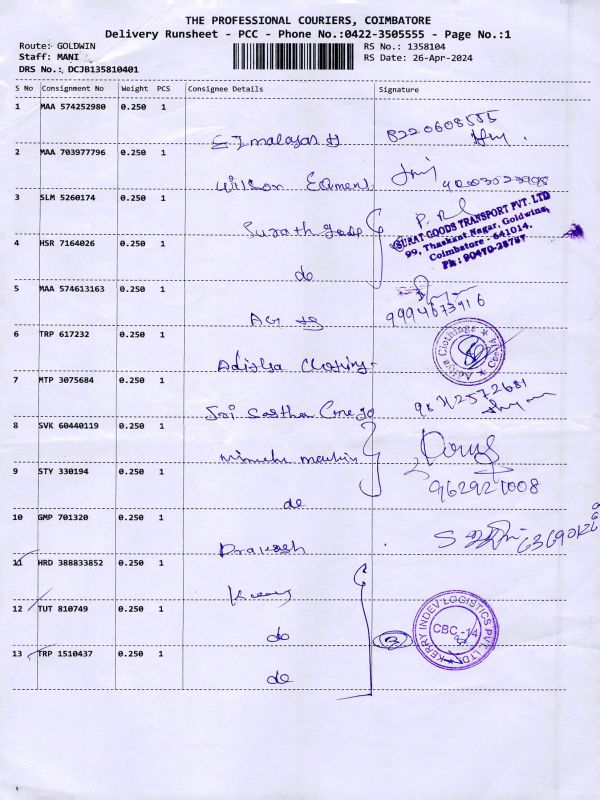 THE PROFESSIONAL COURIERS, COIMBATORE
Delivery Runsheet - PCC - Phone No.:0422-3505555 - Page No.:1
Route: GOLDWIN RS No.: 1358104
Staff: MANI RS Date: 26-Apr-2024
DRS No.: DCJB135810401
S No Consignment No Weight PCS Consignee Details Signature
1 MAA 574252980 0.250 1
8220608555
2 MAA 703977796 0.250 1
Wilson
3 SLM 5260174 0.250 1
Surath
SURAT GOODS TRANSPORT PVT. LTD
99, Thaskant Nagar, Goldwins,
Coimbatore - 641014.
Ph: 90470-28787
4 HSR 7164026 0.250 1
do
5 MAA 574613163 0.250 1
9994673916
6 TRP 617232 0.250 1
Aditya Clothing
Aditya Clothings
7 MTP 3075684 0.250 1
Sri Sastha
8 SVK 60440119 0.250 1
9629921008
9 STY 330194 0.250 1
do
10 GMP 701320 0.250 1
Prakash
11 HRD 388833852 0.250 1
Kerry
12 TUT 810749 0.250 1
do
KERRY INDEV LOGISTICS PVT. LTD
CBC-14
3
13 TRP 1510437 0.250 1
do